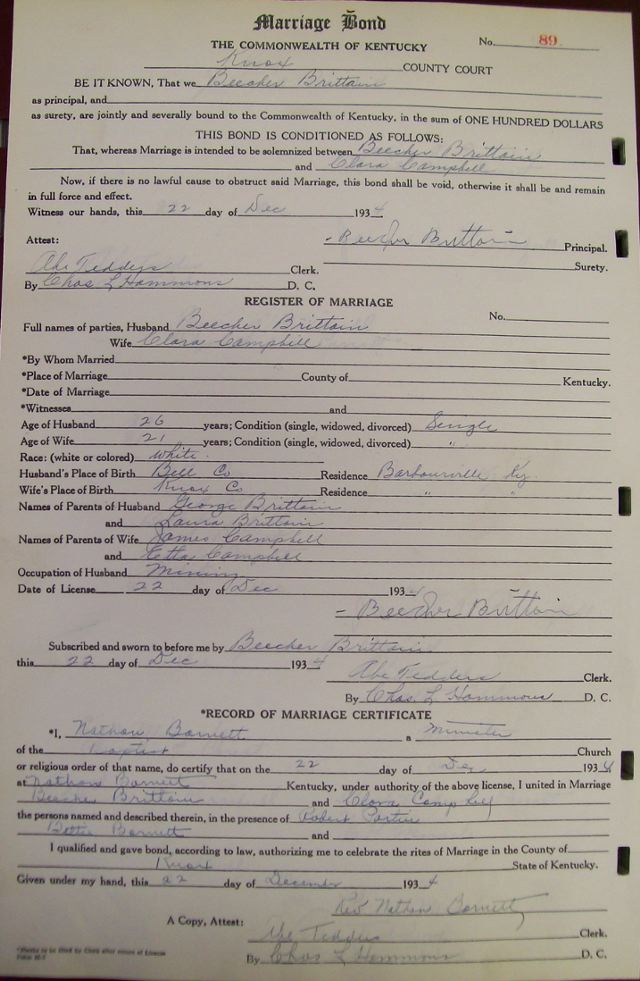 Marriage Bond
THE COMMONWEALTH OF KENTUCKY No. 89
Knox COUNTY COURT
BE IT KNOWN, That we Beecher Brittain
as principal, and
as surety, are jointly and severally bound to the Commonwealth of Kentucky, in the sum of ONE HUNDRED DOLLARS
THIS BOND IS CONDITIONED AS FOLLOWS:
That, whereas Marriage is intended to be solemnized between Beecher Brittain
and Clara Campbell
Now, if there is no lawful cause to obstruct said Marriage, this bond shall be void, otherwise it shall be and remain
in full force and effect.
Witness our hands, this 22 day of Dec 1934
Attest: Beecher Brittain Principal.
Abe Tedders Clerk. Surety.
By Chas L Hammons D. C.
REGISTER OF MARRIAGE
No.
Full names of parties, Husband Beecher Brittain
Wife Clara Campbell
*By Whom Married
*Place of Marriage County of Kentucky.
*Date of Marriage
*Witnesses and
Age of Husband 26 years; Condition (single, widowed, divorced) Single
Age of Wife 21 years; Condition (single, widowed, divorced) "
Race: (white or colored) White.
Husband's Place of Birth Bell Co Residence Barbourville Ky.
Wife's Place of Birth Knox Co Residence " "
Names of Parents of Husband George Brittain
and Laura Brittain
Names of Parents of Wife James Campbell
and Etta Campbell
Occupation of Husband Mining
Date of License 22 day of Dec 1934
Beecher Brittain
Subscribed and sworn to before me by Beecher Brittain
this 22 day of Dec 1934
Abe Tedders Clerk.
By Chas. L Hammons D. C.
*RECORD OF MARRIAGE CERTIFICATE
*I, Nathan Barnett a Minister
of the Baptist Church
or religious order of that name, do certify that on the 22 day of Dec 1934
at Nathan Barnett Kentucky, under authority of the above license, I united in Marriage
Beecher Brittain and Clara Campbell
the persons named and described therein, in the presence of Robert
Bettie Barnett and
I qualified and gave bond, according to law, authorizing me to celebrate the rites of Marriage in the County of
Knox State of Kentucky.
Given under my hand, this 22 day of December 1934
Rev Nathan Barnett
A Copy, Attest:
Abe Tedders Clerk.
By Chas L Hammons D. C.
*Blanks to be filled by Clerk after return of License